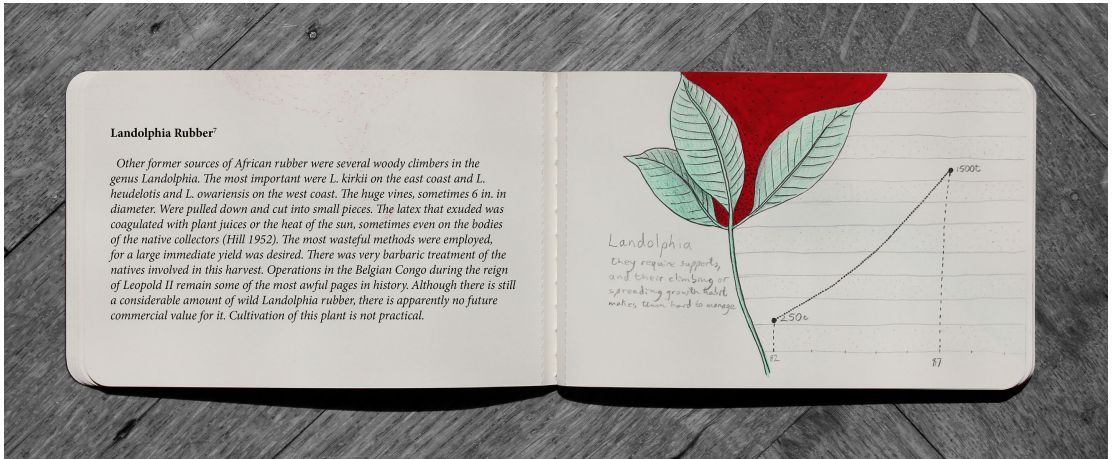 Landolphia Rubber⁷
Other former sources of African rubber were several woody climbers in the
genus Landolphia. The most important were L. kirkii on the east coast and L.
heudelotis and L. owariensis on the west coast. The huge vines, sometimes 6 in. in
diameter. Were pulled down and cut into small pieces. The latex that exuded was
coagulated with plant juices or the heat of the sun, sometimes even on the bodies
of the native collectors (Hill 1952). The most wasteful methods were employed,
for a large immediate yield was desired. There was very barbaric treatment of the
natives involved in this harvest. Operations in the Belgian Congo during the reign
of Leopold II remain some of the most awful pages in history. Although there is still
a considerable amount of wild Landolphia rubber, there is apparently no future
commercial value for it. Cultivation of this plant is not practical.
Landolphia
they require supports,
and their climbing or
spreading growth habit
makes them hard to manage
1500t
250t
82
87